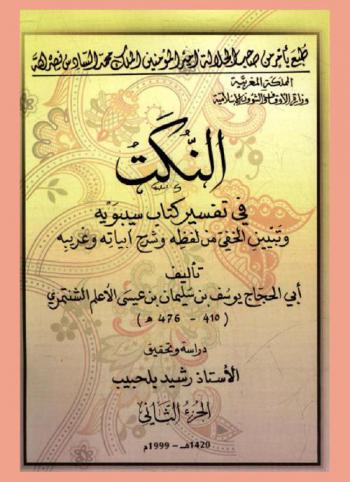 طبع بأمر من صاحب الجلالة أمير المؤمنين الملك محمد السادس نصره الله
المملكة المغربية
وزارة الأوقاف والشؤون الإسلامية
النُّكَتُ
في تفسير كتاب سيبويه
وتبيين الخفي من لفظه وشرح أبياته وغريبه
تأليف
أبي الحجاج يوسف بن سليمان بن عيسى الأعلم الشنتمري
( 410 - 476 هـ )
دراسة وتحقيق
الأستاذ رشيد بلحبيب
الجزء الثاني
1420هـ - 1999م